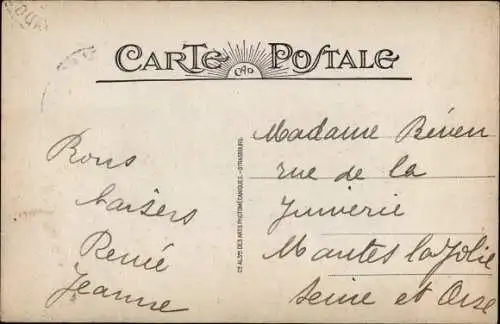 CARTE POSTALE
CAP
Bons
baisers
René
Jeanne
CIE ALSNE DES ARTS PHOTOMÉCANIQUES - STRASBOURG
Madame Réven
rue de la
Juiverie
Mantes la Jolie
Seine et Oise